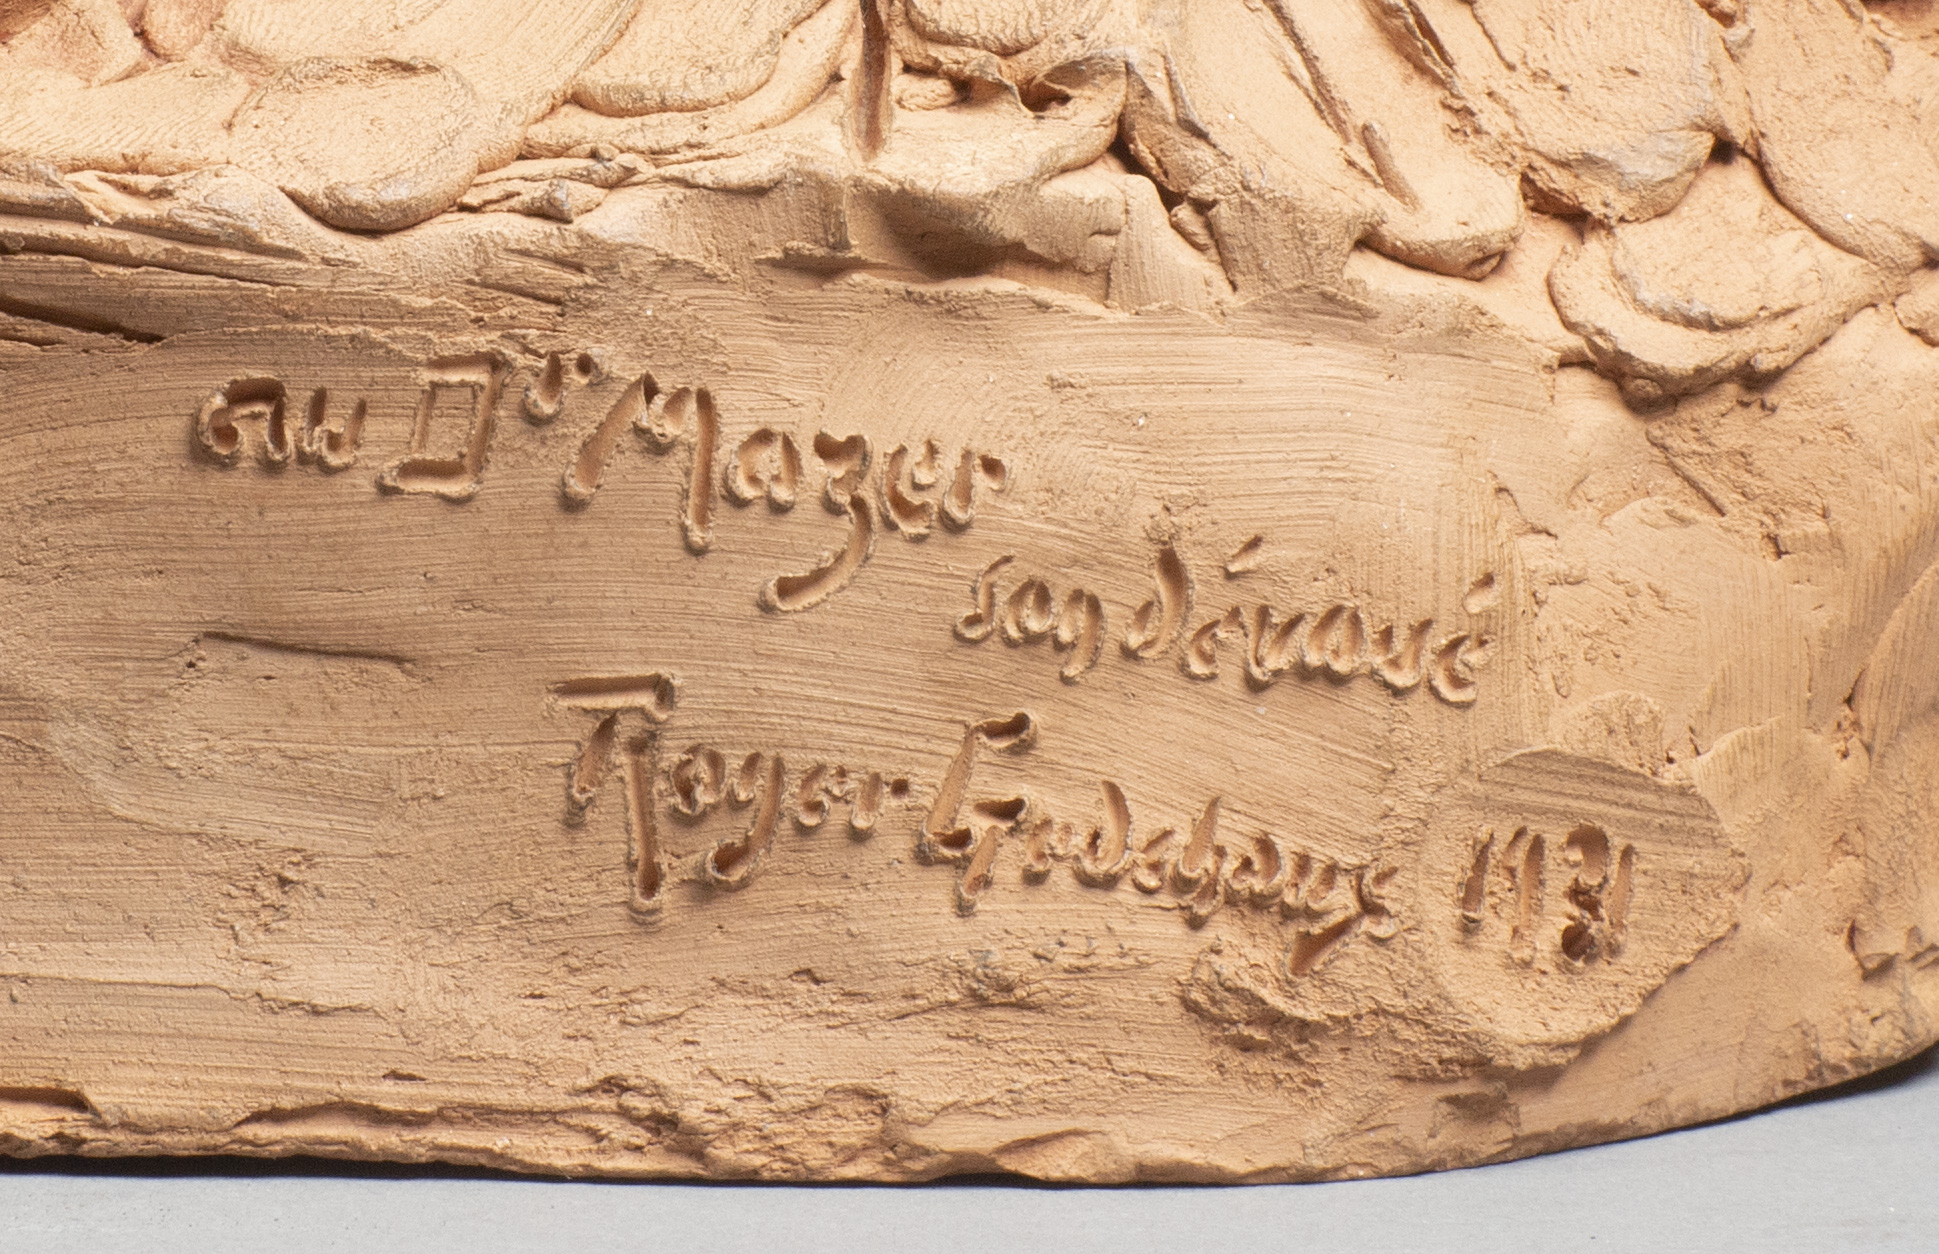 au Dr Mazer
son dévoué
Roger Godchaux 1931